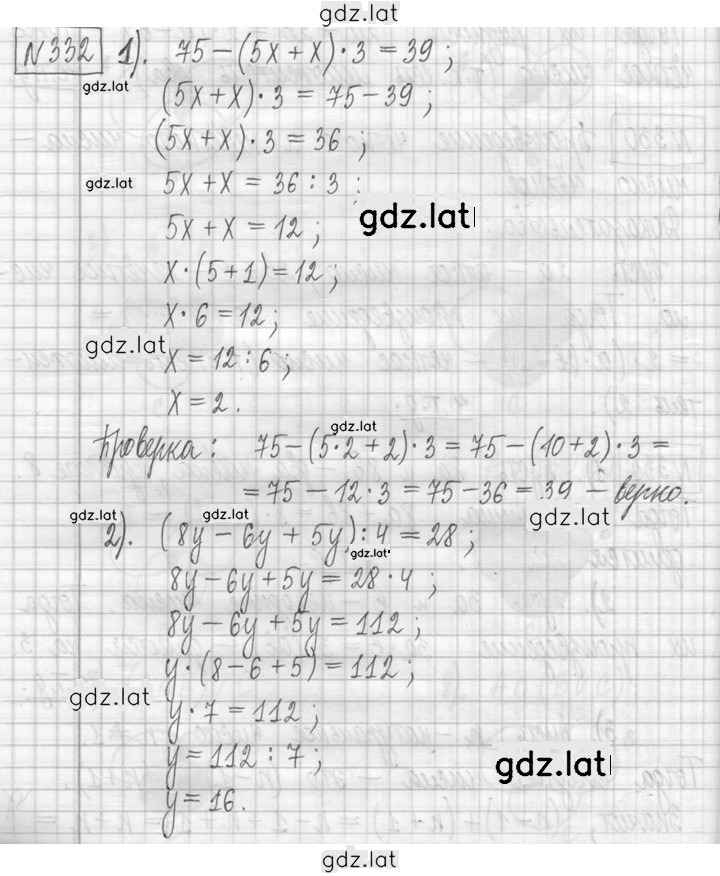 gdz.lat
№332 1). 75 – (5x + x) · 3 = 39 ;
gdz.lat
(5x + x) · 3 = 75 – 39 ;
(5x + x) · 3 = 36 ;
gdz.lat 5x + x = 36 : 3 ;
gdz.lat
5x + x = 12 ;
x · (5 + 1) = 12 ;
x · 6 = 12 ;
gdz.lat
x = 12 : 6 ;
x = 2 .
gdz.lat
Проверка : 75 – (5 · 2 + 2) · 3 = 75 – (10 + 2) · 3 =
= 75 – 12 · 3 = 75 – 36 = 39 – верно.
gdz.lat gdz.lat gdz.lat
2). (8y – 6y + 5y) : 4 = 28 ;
gdz.lat
8y – 6y + 5y = 28 · 4 ;
8y – 6y + 5y = 112 ;
y · (8 – 6 + 5) = 112 ;
gdz.lat
y · 7 = 112 ;
y = 112 : 7 ;
gdz.lat
y = 16 .
gdz.lat